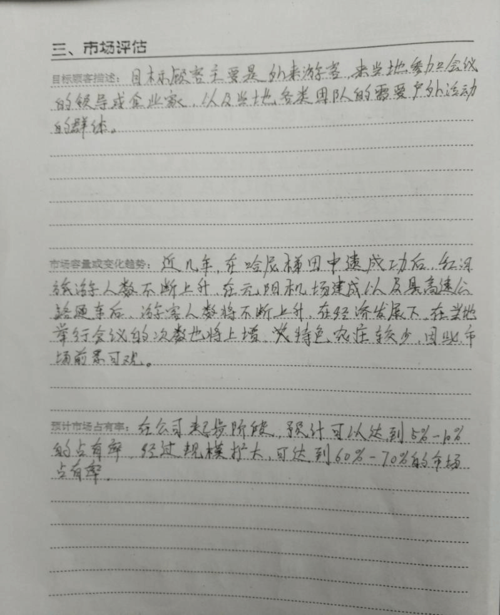 三、市场评估
目标顾客描述：目标顾客主要是外来游客，来当地参加会议
的领导或企业家，以及当地各类团队的需要户外运动
的群体。
市场容量或变化趋势：近几年，在哈尼梯田申遗成功后，红河
旅游人数不断上升，在元阳机场建成以及县高速公
路通车后，游客人数将不断上升，在经济发展下，在当地
举行会议的次数也将上增，特色农庄较少，因此市
场前景可观。
预计市场占有率：在公司起步阶段，预计可以达到5%-10%
的占有率，经过规模扩大，可达到60%-70%的市场
占有率。